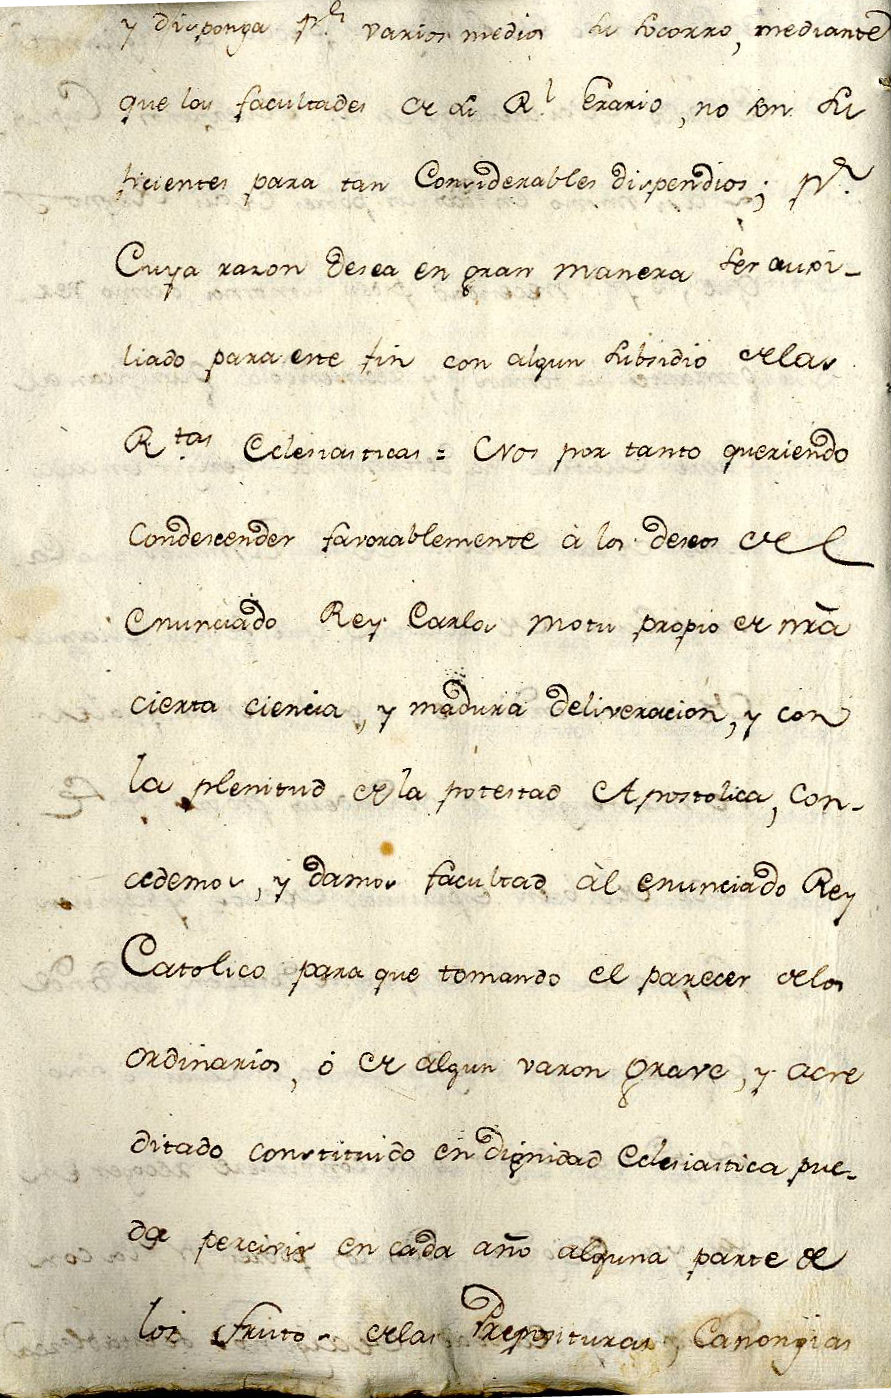 y disponga p.r varios medios su socorro, mediante
que las facultades de su R.l Erario, no son su
ficientes para tan Considerables dispendios; p.r
Cuya razon desea en gran manera ser auxi-
liado para este fin con algun subsidio de las
R.tas Eclesiasticas = Nos por tanto queriendo
Condescender favorablemente à los deseos del
enunciado Rey Carlos motu propio de nrã
cierta ciencia, y madura deliveracion, y con
la plenitud de la potestad Apostolica, Con-
cedemos, y damos facultad àl enunciado Rey
Catolico para que tomando el parecer delos
ordinarios, ó de algun varon grave, y acre
ditado constituido en dignidad Eclesiastica pue-
da percivir en cada año alguna parte de
los frutos delas Preposituras, Canongias